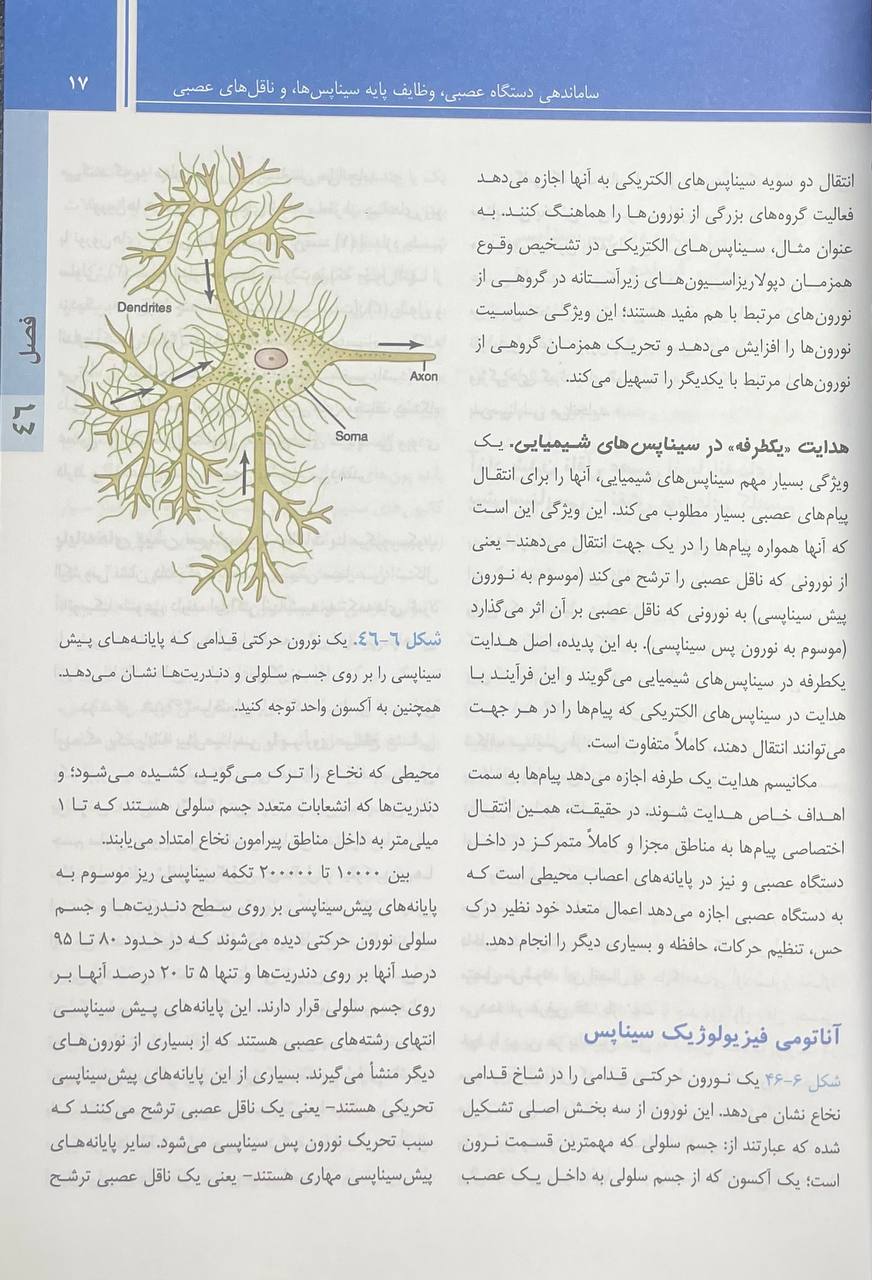 ۱۷
ساماندهی دستگاه عصبی، وظایف پایه سیناپس‌ها، و ناقل‌های عصبی
فصل
٤٦
انتقال دو سویه سیناپس‌های الکتریکی به آنها اجازه می‌دهد
فعالیت گروه‌های بزرگی از نورون‌ها را هماهنگ کنند. به
عنوان مثال، سیناپس‌های الکتریکی در تشخیص وقوع
همزمان دپولاریزاسیون‌های زیرآستانه در گروهی از
نورون‌های مرتبط با هم مفید هستند؛ این ویژگی حساسیت
نورون‌ها را افزایش می‌دهد و تحریک همزمان گروهی از
نورون‌های مرتبط با یکدیگر را تسهیل می‌کند.
هدایت «یکطرفه» در سیناپس‌های شیمیایی. یک
ویژگی بسیار مهم سیناپس‌های شیمیایی، آنها را برای انتقال
پیام‌های عصبی بسیار مطلوب می‌کند. این ویژگی این است
که آنها همواره پیام‌ها را در یک جهت انتقال می‌دهند- یعنی
از نورونی که ناقل عصبی را ترشح می‌کند (موسوم به نورون
پیش سیناپسی) به نورونی که ناقل عصبی بر آن اثر می‌گذارد
(موسوم به نورون پس سیناپسی). به این پدیده، اصل هدایت
یکطرفه در سیناپس‌های شیمیایی می‌گویند و این فرآیند با
هدایت در سیناپس‌های الکتریکی که پیام‌ها را در هر جهت
می‌توانند انتقال دهند، کاملاً متفاوت است.
مکانیسم هدایت یک طرفه اجازه می‌دهد پیام‌ها به سمت
اهداف خاص هدایت شوند. در حقیقت، همین انتقال
اختصاصی پیام‌ها به مناطق مجزا و کاملاً متمرکز در داخل
دستگاه عصبی و نیز در پایانه‌های اعصاب محیطی است که
به دستگاه عصبی اجازه می‌دهد اعمال متعدد خود نظیر درک
حس، تنظیم حرکات، حافظه و بسیاری دیگر را انجام دهد.
آناتومی فیزیولوژیک سیناپس
شکل ۶-۴۶ یک نورون حرکتی قدامی را در شاخ قدامی
نخاع نشان می‌دهد. این نورون از سه بخش اصلی تشکیل
شده که عبارتند از: جسم سلولی که مهمترین قسمت نرون
است؛ یک آکسون که از جسم سلولی به داخل یک عصب
Dendrites
Axon
Soma
شکل ٦-٤٦. یک نورون حرکتی قدامی که پایانه‌های پیش
سیناپسی را بر روی جسم سلولی و دندریت‌ها نشان می‌دهد.
همچنین به آکسون واحد توجه کنید.
محیطی که نخاع را ترک می‌گوید، کشیده می‌شود؛ و
دندریت‌ها که انشعابات متعدد جسم سلولی هستند که تا ۱
میلی‌متر به داخل مناطق پیرامون نخاع امتداد می‌یابند.
بین ۱۰۰۰۰ تا ۲۰۰۰۰۰ تکمه سیناپسی ریز موسوم به
پایانه‌های پیش‌سیناپسی بر روی سطح دندریت‌ها و جسم
سلولی نورون حرکتی دیده می‌شوند که در حدود ۸۰ تا ۹۵
درصد آنها بر روی دندریت‌ها و تنها ۵ تا ۲۰ درصد آنها بر
روی جسم سلولی قرار دارند. این پایانه‌های پیش سیناپسی
انتهای رشته‌های عصبی هستند که از بسیاری از نورون‌های
دیگر منشأ می‌گیرند. بسیاری از این پایانه‌های پیش‌سیناپسی
تحریکی هستند- یعنی یک ناقل عصبی ترشح می‌کنند که
سبب تحریک نورون پس سیناپسی می‌شود. سایر پایانه‌های
پیش‌سیناپسی مهاری هستند- یعنی یک ناقل عصبی ترشح